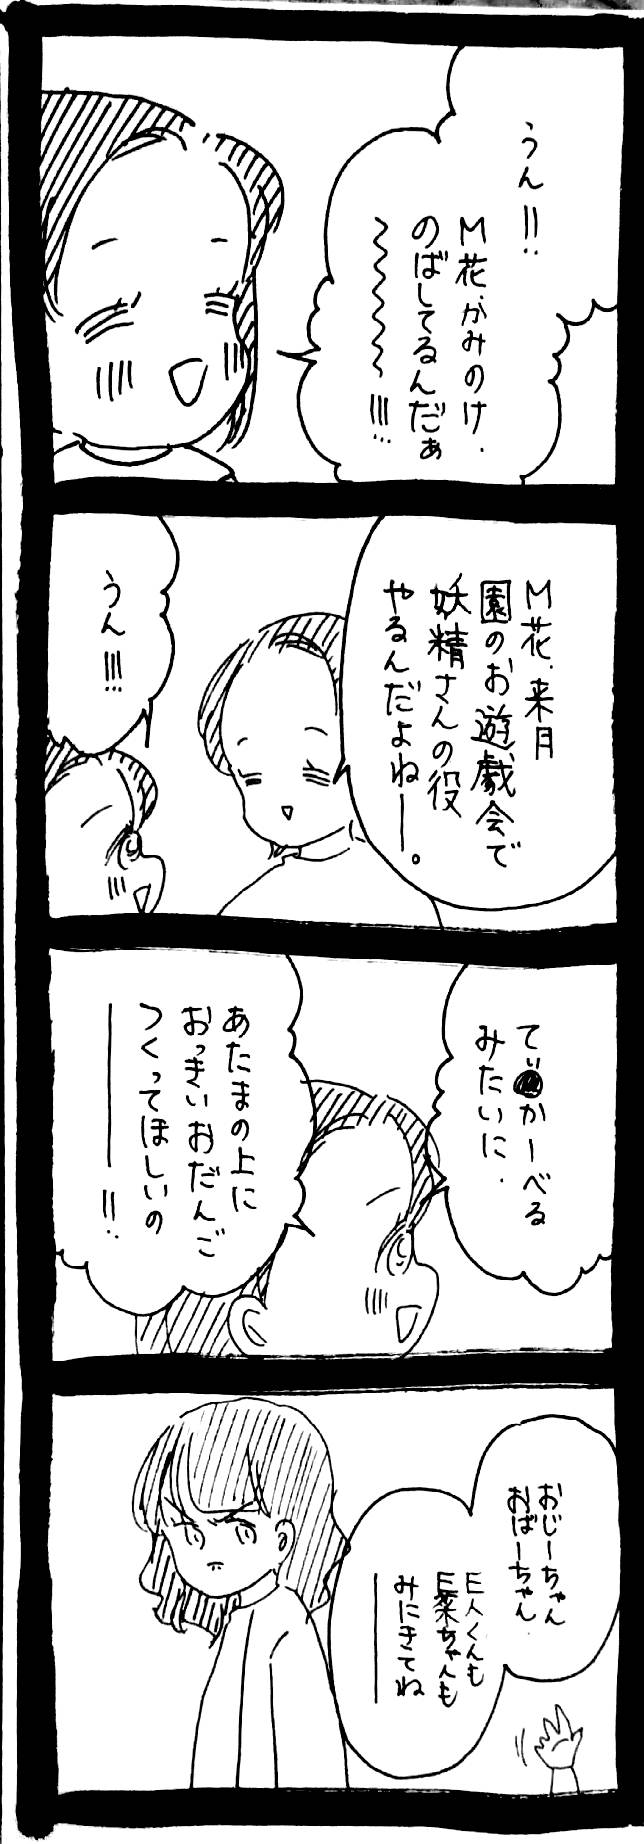 うん!!
M花、かみのけ、
のばしてるんだぁ
〜〜〜〜〜!!!
M花、来月
園のお遊戯会で
妖精さんの役
やるんだよねー。
うん!!!
てぃ●かーべる
みたいに、
あたまの上に
おっきいおだんご
つくってほしいの
ーーー!!
おじーちゃん
おばーちゃん、
E人くんも
E菜ちゃんも
みにきてね
ーーー